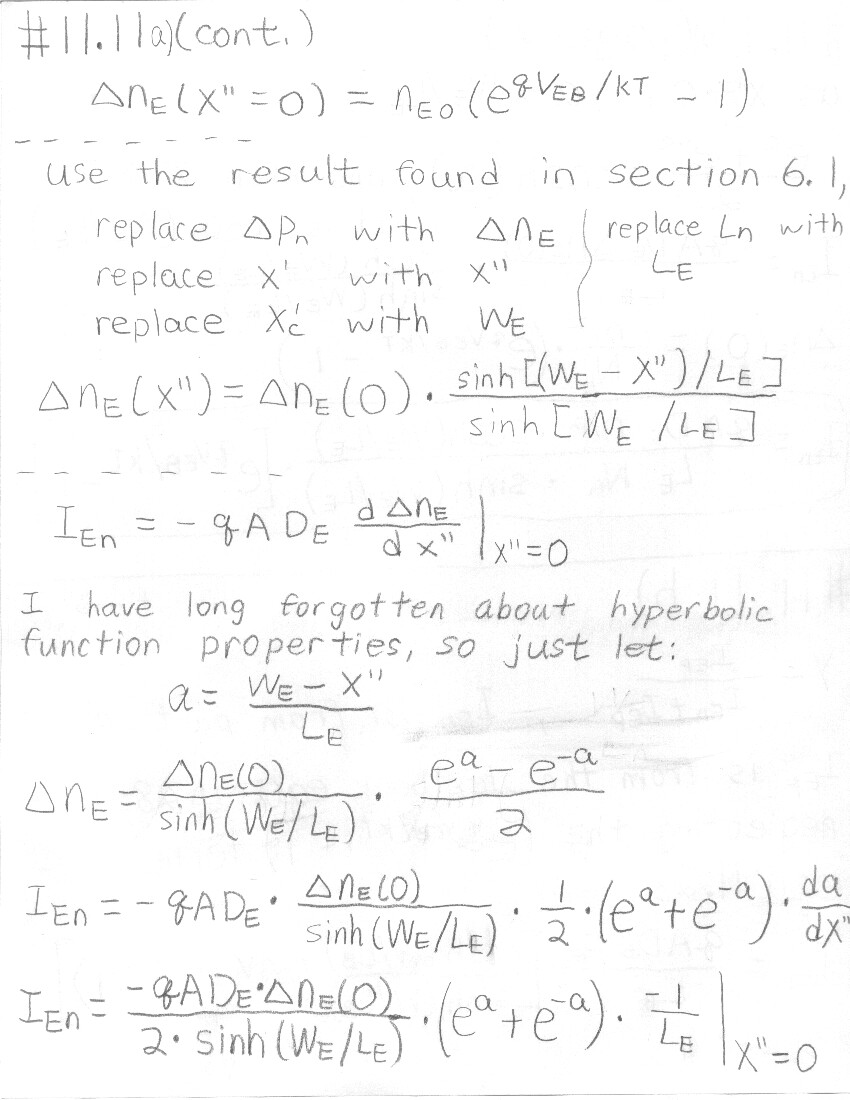 #11.11a)(cont.)
Δn_E(x''=0) = n_E0 (e^(qV_EB/kT) - 1)
Use the result found in section 6.1,
replace Δp_n with Δn_E
replace x' with x''
replace x'_c with W_E
replace L_n with
L_E
Δn_E(x'') = Δn_E(0) · sinh[(W_E - x'')/L_E] / sinh[W_E/L_E]
I_En = -qAD_E dΔn_E/dx'' |_x''=0
I have long forgotten about hyperbolic
function properties, so just let:
a = (W_E - x'')/L_E
Δn_E = Δn_E(0)/sinh(W_E/L_E) · (e^a - e^-a)/2
I_En = -qAD_E · Δn_E(0)/sinh(W_E/L_E) · 1/2 · (e^a + e^-a) · da/dx''
I_En = -qAD_E·Δn_E(0)/(2·sinh(W_E/L_E)) · (e^a + e^-a) · -1/L_E |_x''=0